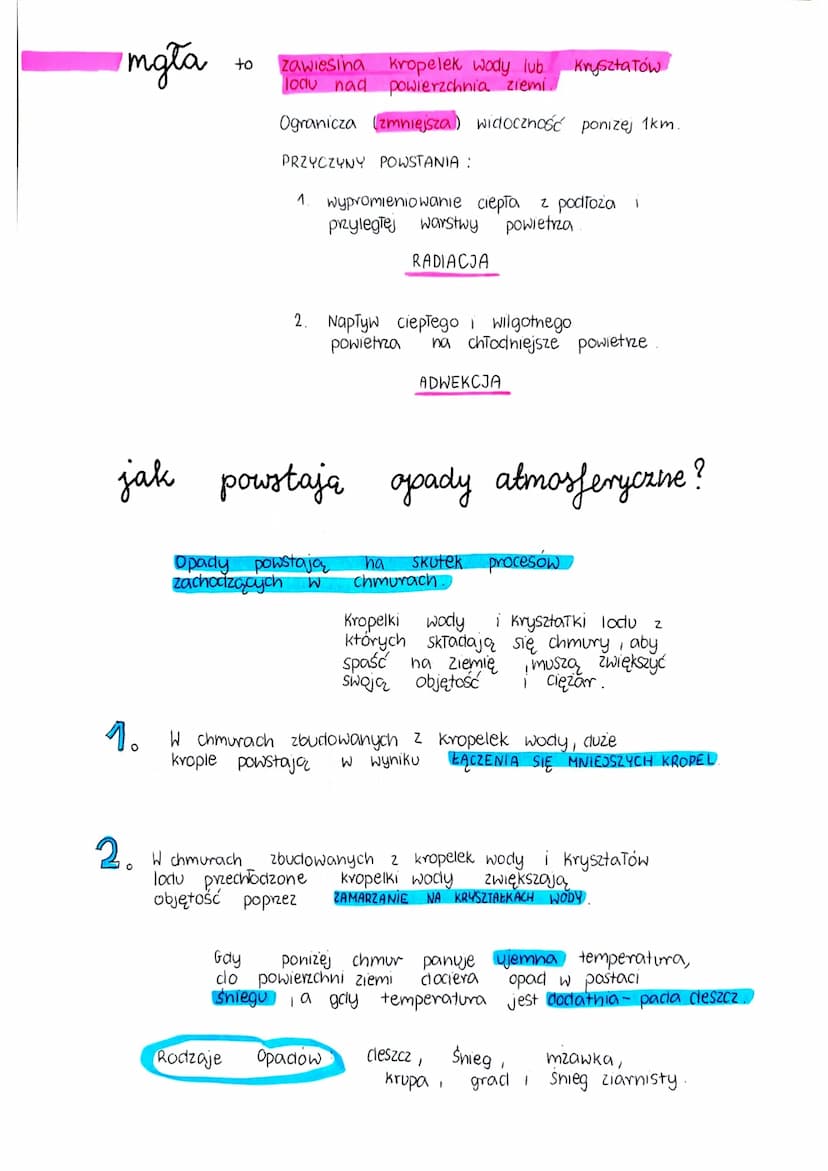 mgła to zawiesina kropelek wody lub kryształów
lodu nad powierzchnia ziemi.
Ogranicza (zmniejsza) widoczność poniżej 1km.
PRZYCZYNY POWSTANIA :
1. wypromieniowanie ciepła z podłoża i
przyległej warstwy powietrza.
RADIACJA
2. Napływ ciepłego i wilgotnego
powietrza na chłodniejsze powietrze.
ADWEKCJA
jak powstają opady atmosferyczne?
Opady powstają na skutek procesów
zachodzących w chmurach.
Kropelki wody i kryształki lodu z
których składają się chmury, aby
spaść na ziemię, muszą zwiększyć
swoją objętość i ciężar.
1. W chmurach zbudowanych z kropelek wody, duże
krople powstają w wyniku ŁĄCZENIA SIĘ MNIEJSZYCH KROPEL
2. W chmurach zbudowanych z kropelek wody i kryształów
lodu przechłodzone kropelki wody zwiększają
objętość poprzez ZAMARZANIE NA KRYSZTAŁKACH WODY.
Gdy poniżej chmur panuje ujemna temperatura,
do powierzchni ziemi dociera opad w postaci
śniegu, a gdy temperatura jest dodatnia - pada deszcz.
Rodzaje Opadów deszcz, śnieg, mżawka,
krupa, grad i śnieg ziarnisty.